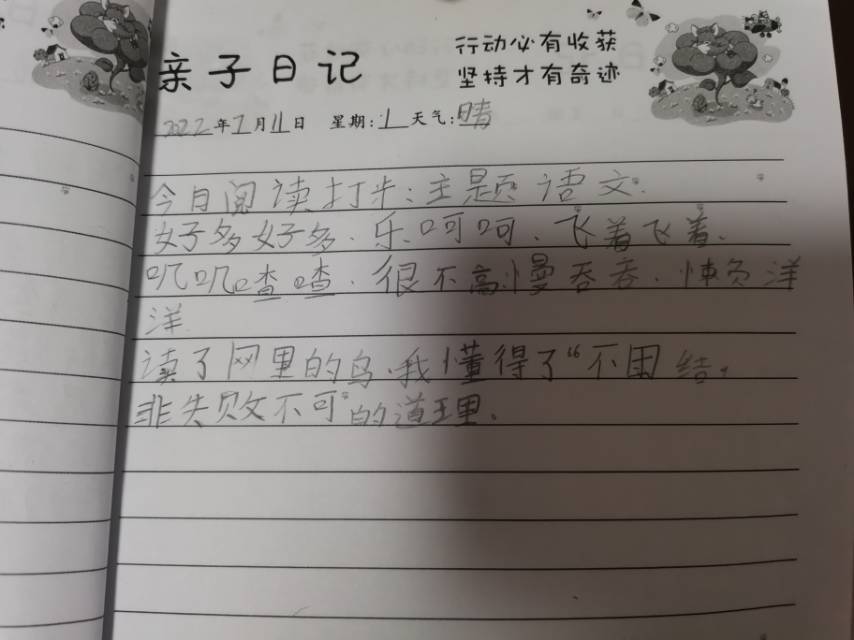 亲子日记
行动必有收获
坚持才有奇迹
2022年7月11日 星期:1 天气:晴
今日阅读打卡:主题语文.
好多好多.乐呵呵.飞着飞着.
叽叽喳喳.很不高.慢吞吞.懒洋
洋
读了网里的鸟.我懂得了“不团结.
非失败不可”的道理.